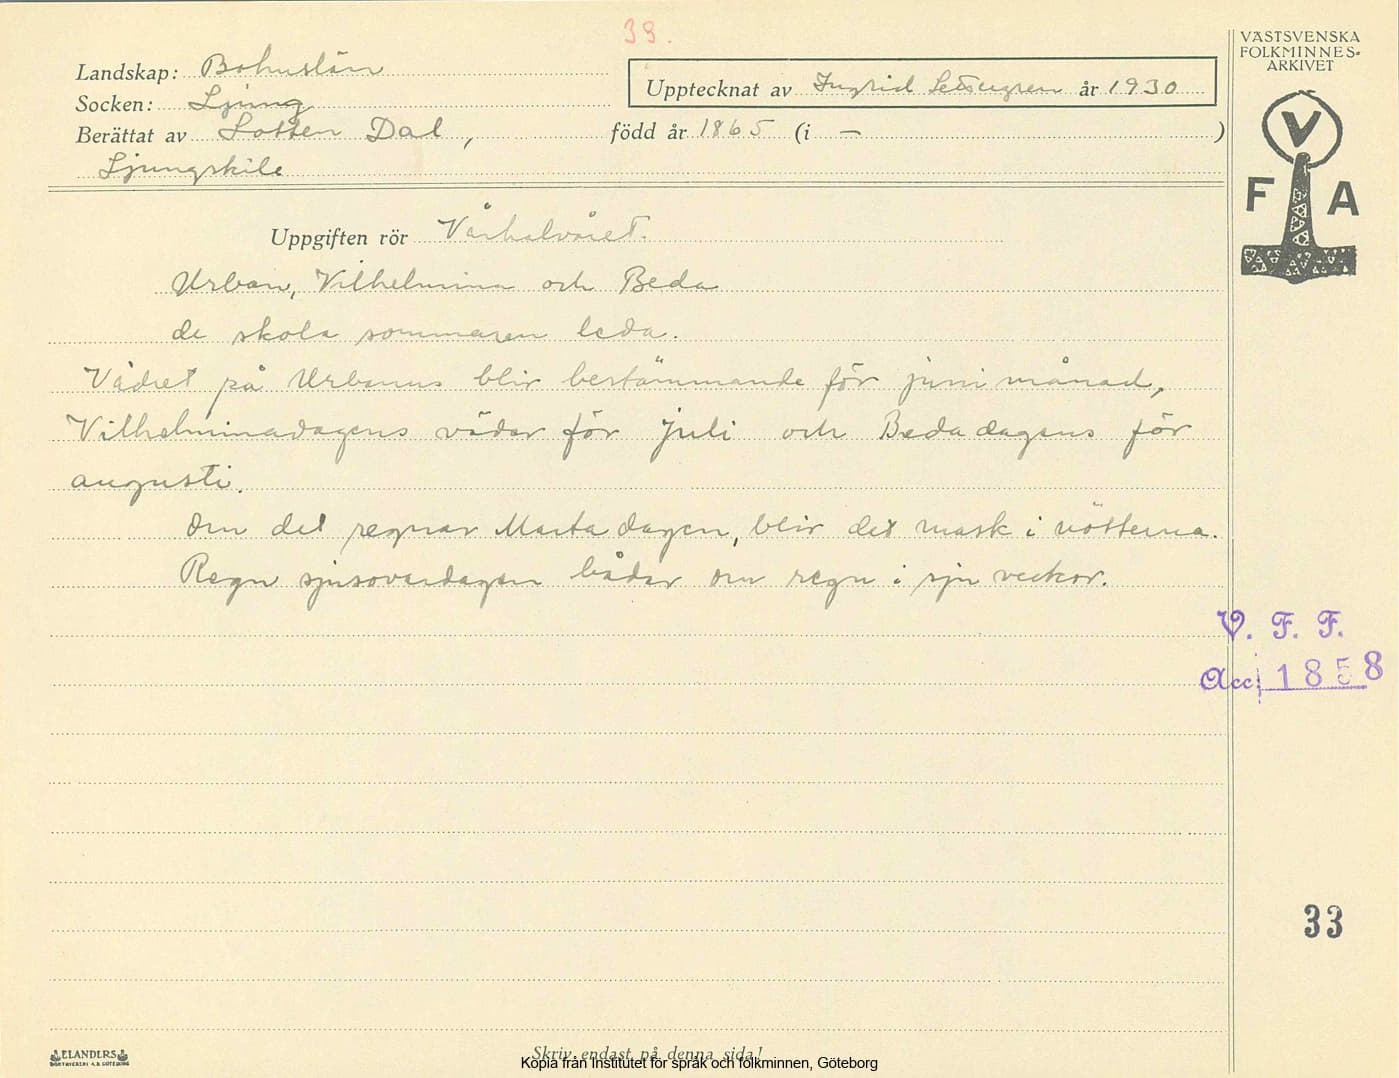 38.
VÄSTSVENSKA
FOLKMINNES-
ARKIVET
V
F A
Landskap: Bohuslän
Upptecknat av Ingrid år 1930
Socken: Ljung
Berättat av Lotten Dal, född år 1865 (i — )
Ljungskile
Uppgiften rör Vårhalvåret.
Urban, Vilhelmina och Beda
de skola sommaren leda.
Vädret på Urbanus blir bestämmande för juni månad,
Vilhelminadagens väder för juli och Bedadagens för
augusti.
Om det regnar Martadagen, blir det mask i nötterna.
Regn sjusovaredagen bådar om regn i sju veckor.
V. F. F.
Acc: 1858
33
ELANDERS
BOKTRYCKERI A.B. GÖTEBORG
Skriv endast på denna sida!
Kopia från Institutet för språk och folkminnen, Göteborg